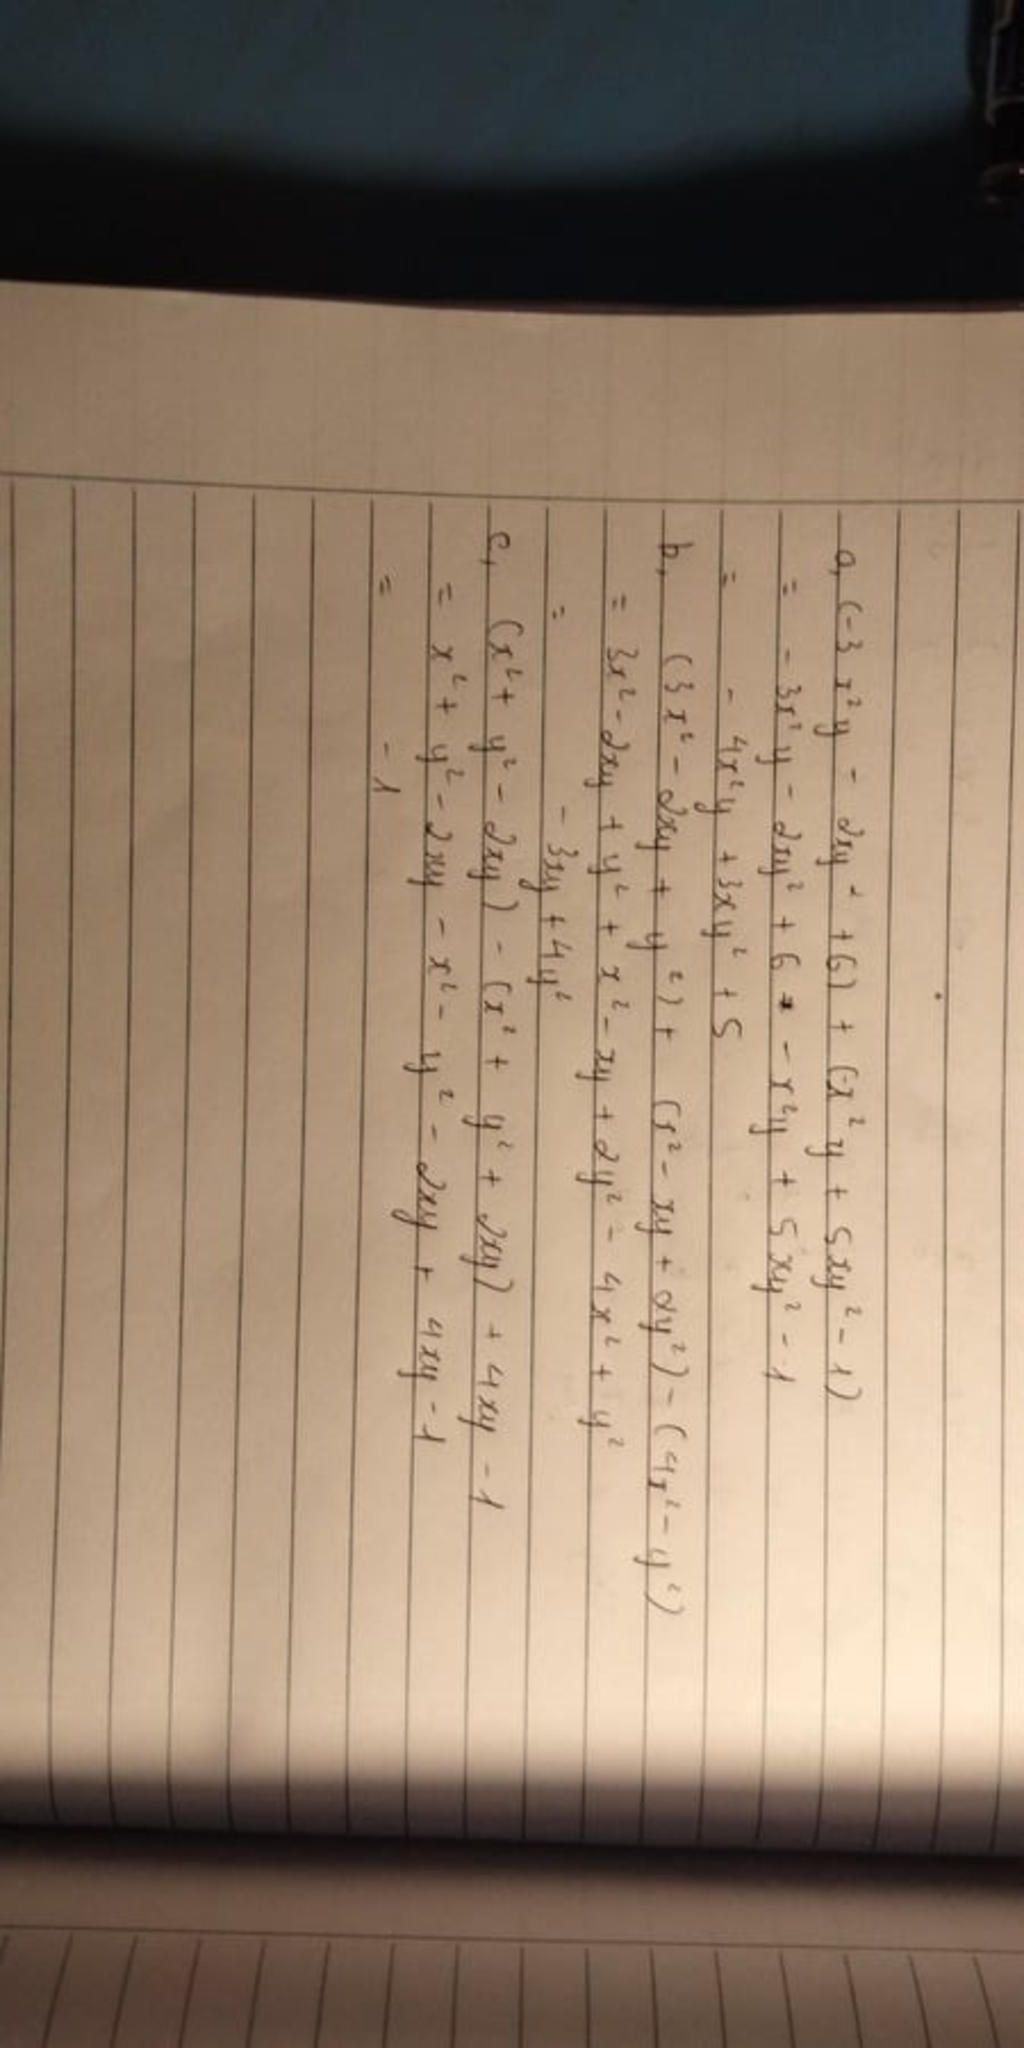 a, (-3x²y - 2xy² + 6) + (-x²y + 5xy² - 1)
= -3x²y - 2xy² + 6 - x²y + 5xy² - 1
= -4x²y + 3xy² + 5
b, (3x² - 2xy + y²) + (x² - xy + 2y²) - (4x² - y²)
= 3x² - 2xy + y² + x² - xy + 2y² - 4x² + y²
= -3xy + 4y²
c, (x² + y² - 2xy) - (x² + y² + 2xy) + 4xy - 1
= x² + y² - 2xy - x² - y² - 2xy + 4xy - 1
= -1